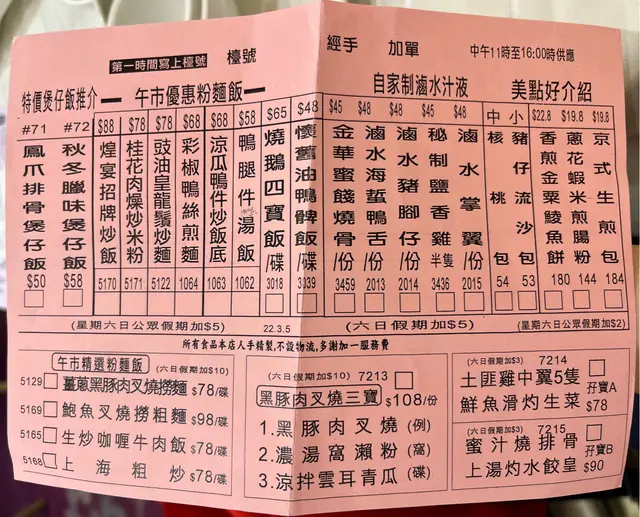 第一時間寫上檯號 檯號 經手 加單 中午11時至16:00時供應
特價煲仔飯推介 午市優惠粉麵飯 自家制滷水汁液 美點好介紹
#71 鳳爪排骨煲仔飯 $50
#72 秋冬臘味煲仔飯 $58
$88 煌宴招牌炒飯 5170
$78 桂花肉燥炒米粉 5171
$78 豉油皇龍鬚炒麵 5122
$68 彩椒鴨絲煎麵 1064
$68 涼瓜鴨件炒飯底 1063
$58 鴨腿件湯飯 1062
$65 燒鵝四寶飯/碟 3018
$48 懷舊油鴨髀飯/碟 3039
$45 金華蜜餞燒骨/份 3459
$48 滷水海蜇鴨舌/份 2013
$48 滷水豬腳仔/份 2014
$45 秘制鹽香雞/半隻 3436
$48 滷水掌翼/份 2015
中 核桃包 54
小 豬仔流沙包 53
$22.8 香煎金粟鯪魚餅 180
$19.8 蔥花蝦米煎腸粉 144
$19.8 京式生煎包 184
(星期六日公眾假加$5) 22.3.5 (六日假期加$5) (星期六日公眾假加$2)
所有食品本店人手精製,不設物流,多謝加一服務費
午市精選粉麵飯 (六日假期加$10)
5129 薑蔥黑豚肉叉燒撈麵 $78/碟
5169 鮑魚叉燒撈粗麵 $98/碟
5165 生炒咖喱牛肉飯 $78/碟
5168 上海粗炒 $78/碟
(六日假期加$10) 7213
黑豚肉叉燒三寶 $108/份
1.黑豚肉叉燒(例)
2.濃湯窩瀨粉(窩)
3.涼拌雲耳青瓜(碟)
(六日假加$3) 7214
土匪雞中翼5隻 孖寶A
鮮魚滑灼生菜 $78
(六日假加$3) 7215
蜜汁燒排骨 孖寶B
上湯灼水餃皇 $90